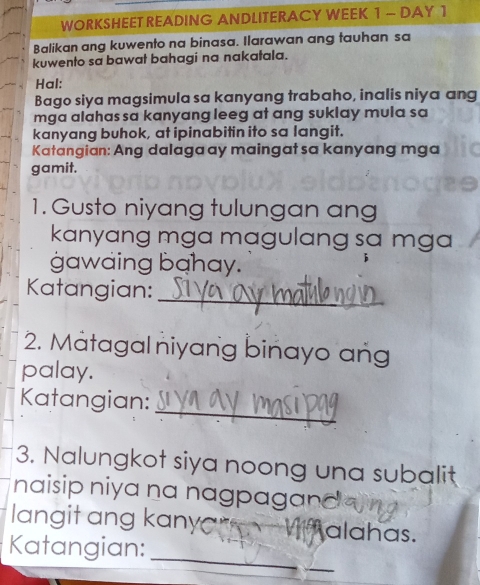 WORKSHEET READING ANDLITERACY WEEK 1 – DAY 1
Balikan ang kuwento na binasa. Ilarawan ang tauhan sa
kuwento sa bawat bahagi na nakatala.
Hal:
Bago siya magsimula sa kanyang trabaho, inalis niya ang
mga alahas sa kanyang leeg at ang suklay mula sa
kanyang buhok, at ipinabitin ito sa langit.
Katangian: Ang dalaga ay maingat sa kanyang mga
gamit.
1. Gusto niyang tulungan ang
kanyang mga magulang sa mga
gawaing bahay.
Katangian: siya ay matulongin
2. Matagal niyang binayo ang
palay.
Katangian: siya ay masipag
3. Nalungkot siya noong una subalit
naisip niya na nagpaganda ng
langit ang kanyang alahas.
Katangian: